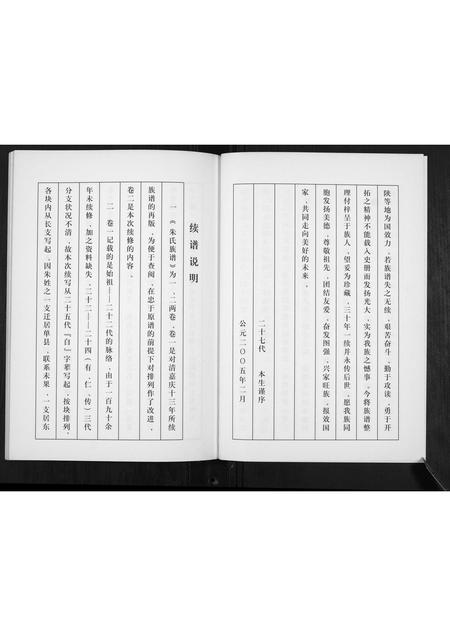 陕等地为国效力，若族谱失之无续，艰苦奋斗、勤于攻读，勇于开
拓之精神不能载入史册而发扬光大，实为我族之憾事。今将族谱整
理付梓呈于族人，望爱为珍藏，三十年一续并永传后世。愿我族同
胞发扬美德，尊敬祖先，团结友爱，奋发图强，兴家旺族，报效国
家，共同走向美好的未来。
二十七代　本生谨序
公元二00五年二月
续谱说明
一《朱氏族谱》为一、二两卷，卷一是对清嘉庆十三年所续
族谱的再版，为便于查阅，在忠于原谱的前提下对排列作了改进，
卷二是本次续修的内容。
二　卷一记载的是始祖——二十二代的脉络，由于一百九十余
年未续修，加之资料缺失，二十二——二十四（有、仁、传）三代
分支状况不清，故本次续写从二十五代『自』字辈写起，按块排列，
各块内从长支写起，因朱姓之一支迁居单县，联系未果，一支居东